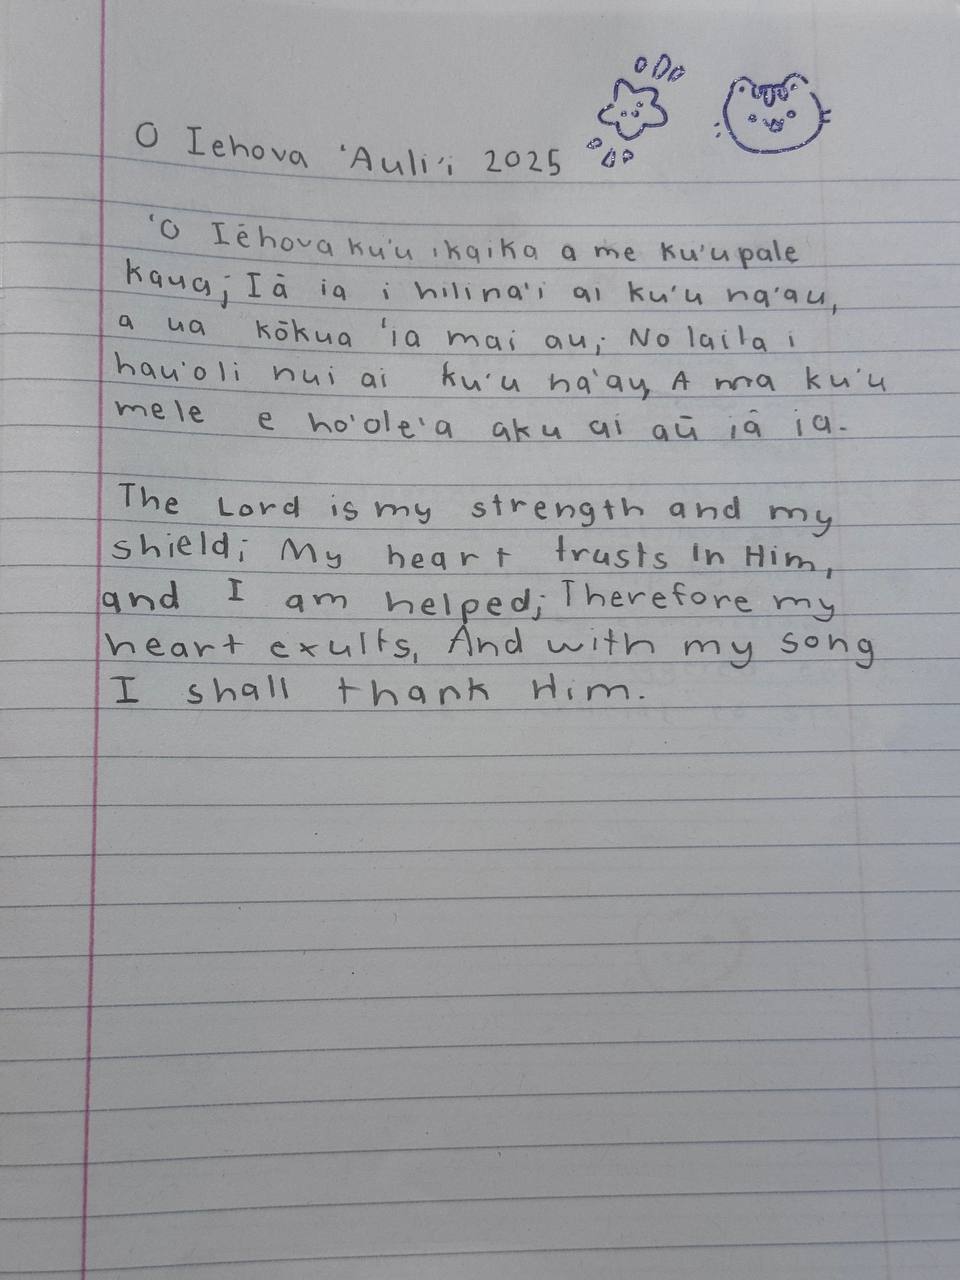 O Iehova 'Auli'i 2025
'O Iēhova ku'u ikaika a me ku'u pale
kaua; Iā ia i hilina'i ai ku'u na'au,
a ua kōkua 'ia mai au; No laila i
hau'oli nui ai ku'u na'au, A ma ku'u
mele e ho'ole'a aku ai aū iā ia.
The Lord is my strength and my
shield; My heart trusts in Him,
and I am helped; Therefore my
heart exults, And with my song
I shall thank Him.